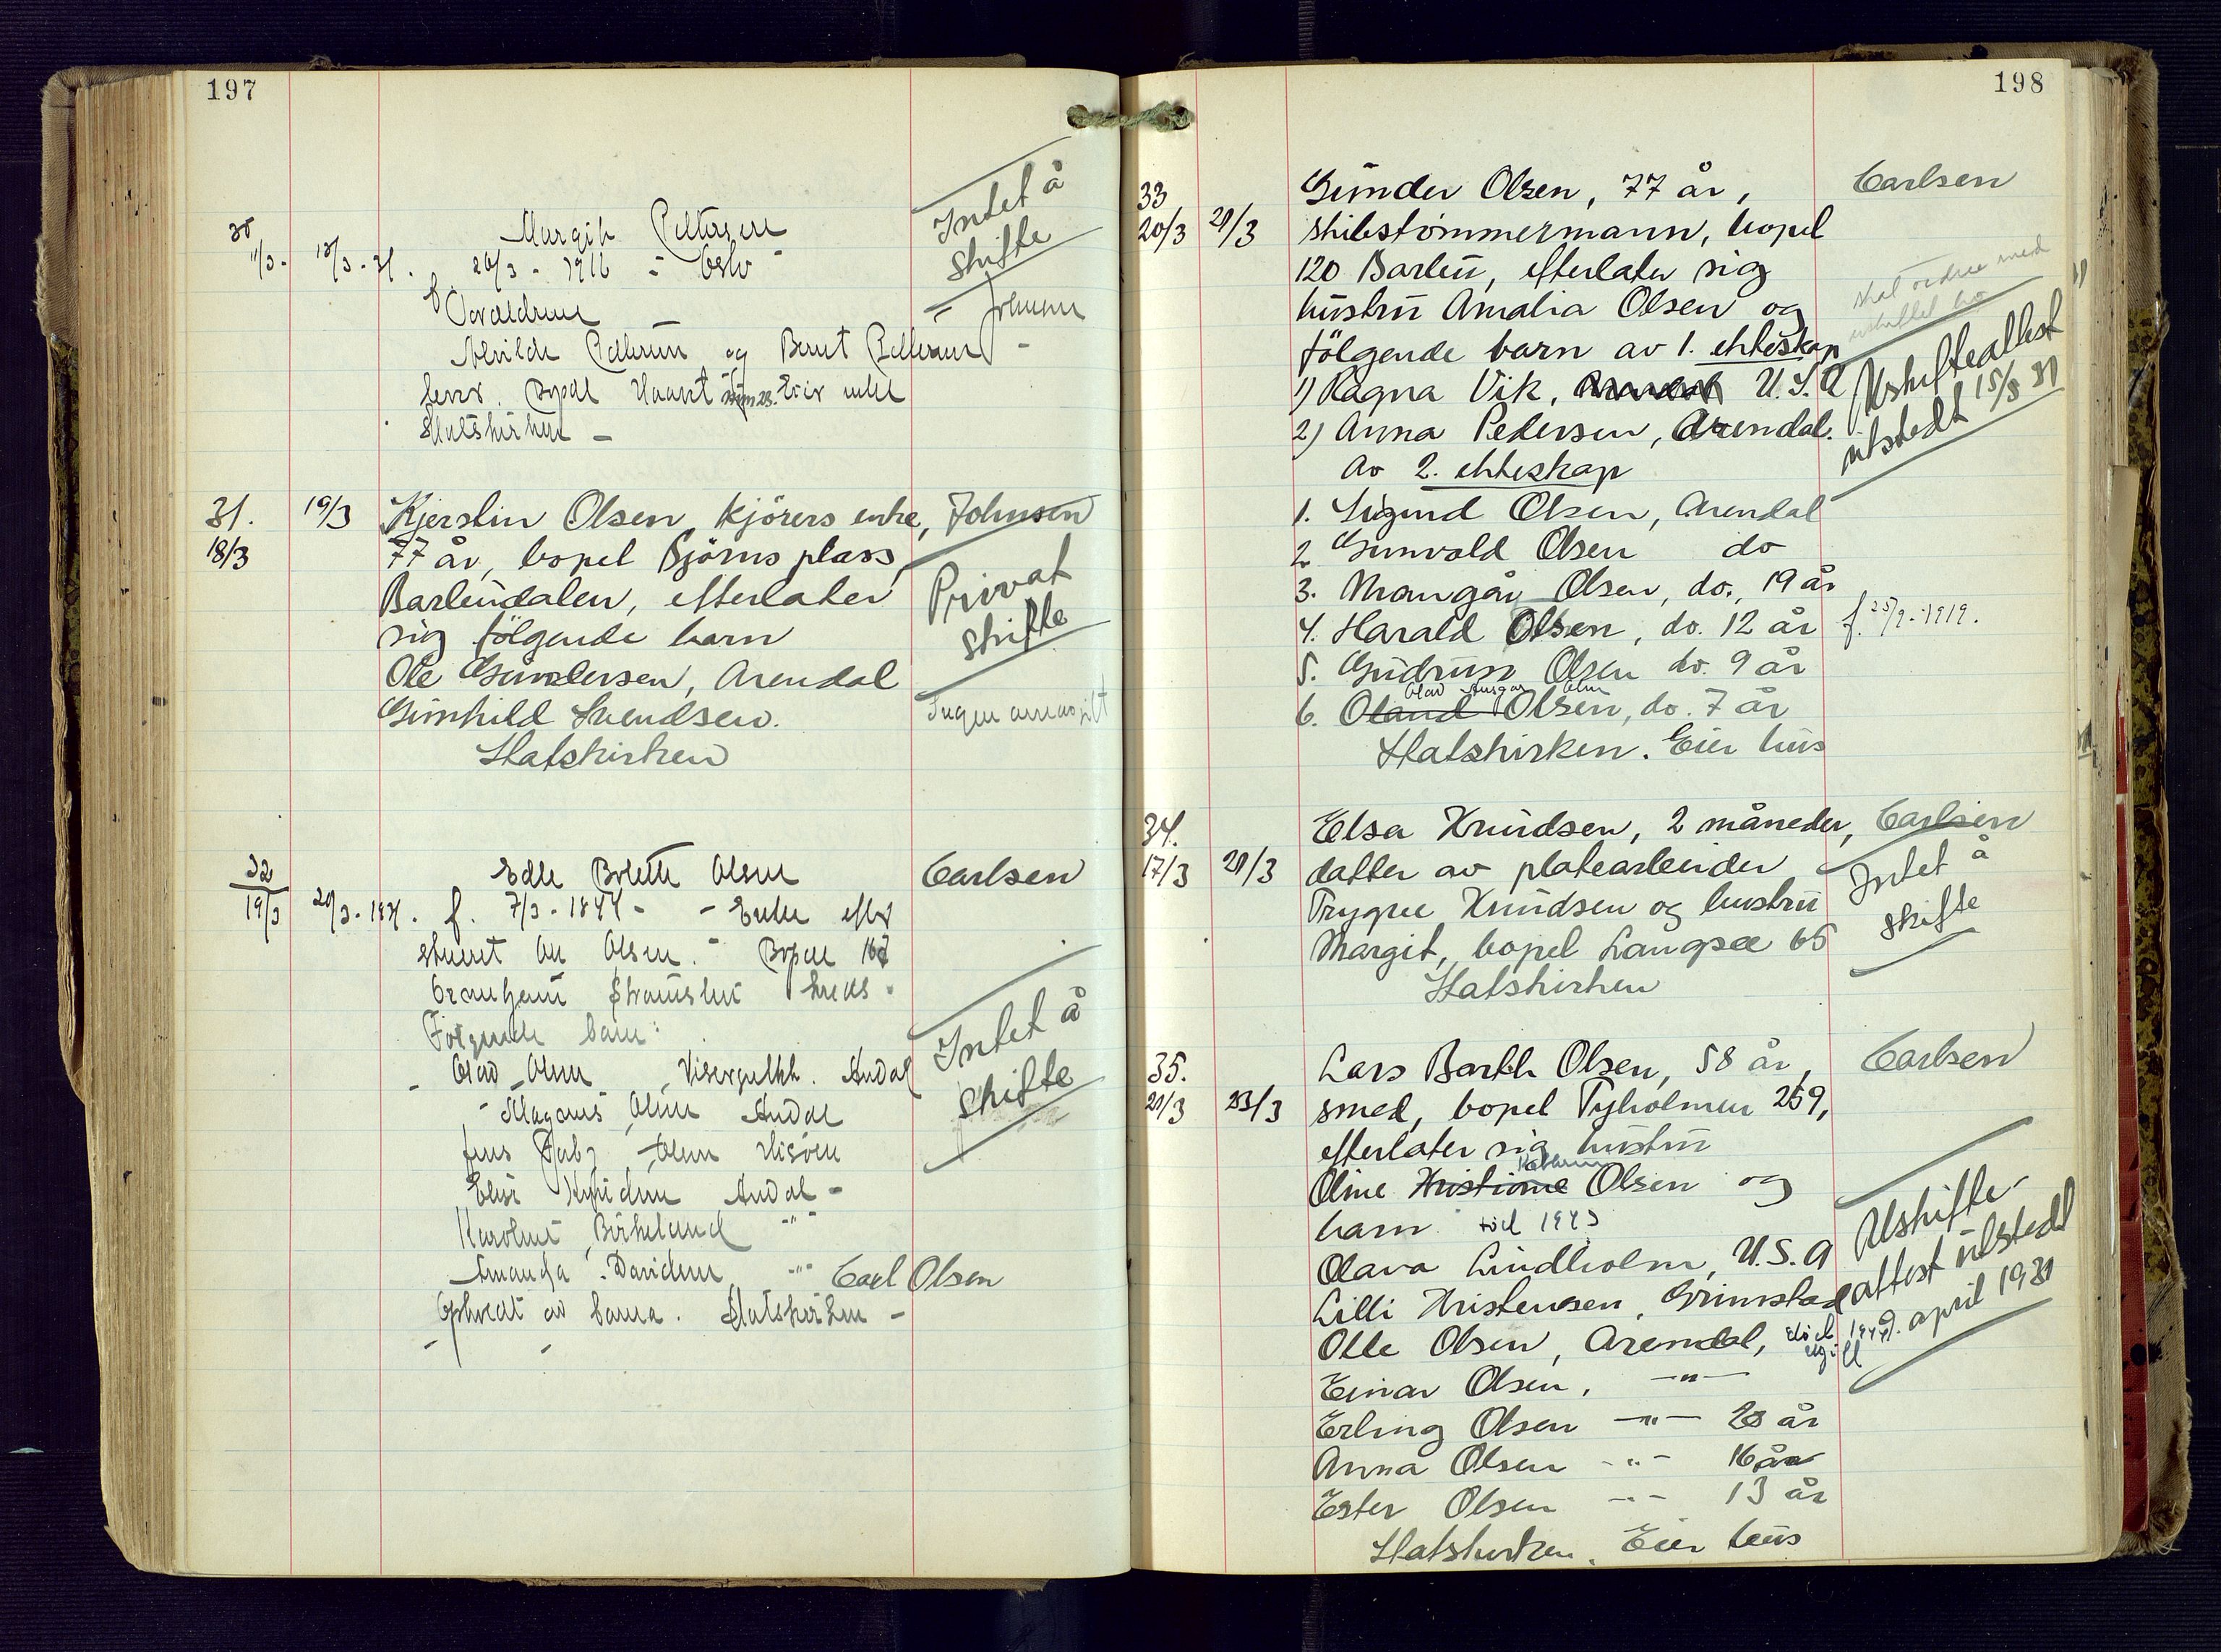 197
30
11/3 - 18/3 - 31.
Margit Pettersen
f. 20/3 - 1916 - Oslo -
Foreldrene
og Bernt Pettersen -
Statskirken -
Intet å
skifte
Johnsen
31.
18/3
19/3
Kjerstin Olsen, kjörers enke,
77 år, bopel Björns plass,
Barbudalen, efterlater
sig fölgende barn
Ole Gundersen, Arendal
Gunhild Svendsen.
Statskirken
Johnsen
Privat
skifte
32
19/3
20/3 - 1931.
Edle Bolette Olsen
f. 7/3 - 1844 - - Enke efter
Olsen. - Bopæl
Følgende barn:
- Olav Olsen, Arndal
- Magnus Olsen Arndal
Jens Olsen Hisöen
Elise Knudsen Arndal -
Karoline Birkeland -"-
Amanda Davidsen -"-
Carl Olsen
Opholdt av barna. Statskirken -
Carlsen
Intet å
skifte
198
33
20/3
21/3
Gunder Olsen, 77 år,
skibstömmermann, bopel
120 Barbu, efterlater sig
hustru Amalia Olsen og
fölgende barn av 1. ekteskap
1) Ragna Vik, U.S.A
2) Anna Pedersen, Arendal.
Av 2. ekteskap
1. Sigurd Olsen, Arendal
2 Gunvald Olsen do
3. Margår Olsen, do., 19 år
4. Harald Olsen, do. 12 år f. 25/9-1919.
5. Gudrun Olsen do. 9 år
Olav Ansgar Olsen
6. Oland Olsen, do. 7 år
Statskirken. Eier hus
Carlsen
skal ordne med
uskiftet bo
Uskifteattest
utstedt 15/5 31
34.
17/3
21/3
Elsa Knudsen, 2 måneder,
datter av platearbeider
Trygve Knudsen og hustru
Margit, bopel Langsæ 65
Statskirken
Carlsen
Intet å
skifte
35.
21/3
23/3
Lars Barth Olsen, 58 år,
smed, bopel Tyholmen 259,
efterlater sig hustru
Oline Kristiane Olsen og
barn död 1943
Olava Lindholm, U.S.A
Lilli Kristensen, Grimstad
Olle Olsen, Arendal,
Einar Olsen, -"-
Erling Olsen -"- 20 år
Anna Olsen -"- 16 år
Ester Olsen -"- 13 år
Statskirken. Eier hus
Carlsen
Uskifte-
attest utstedt
april 1931